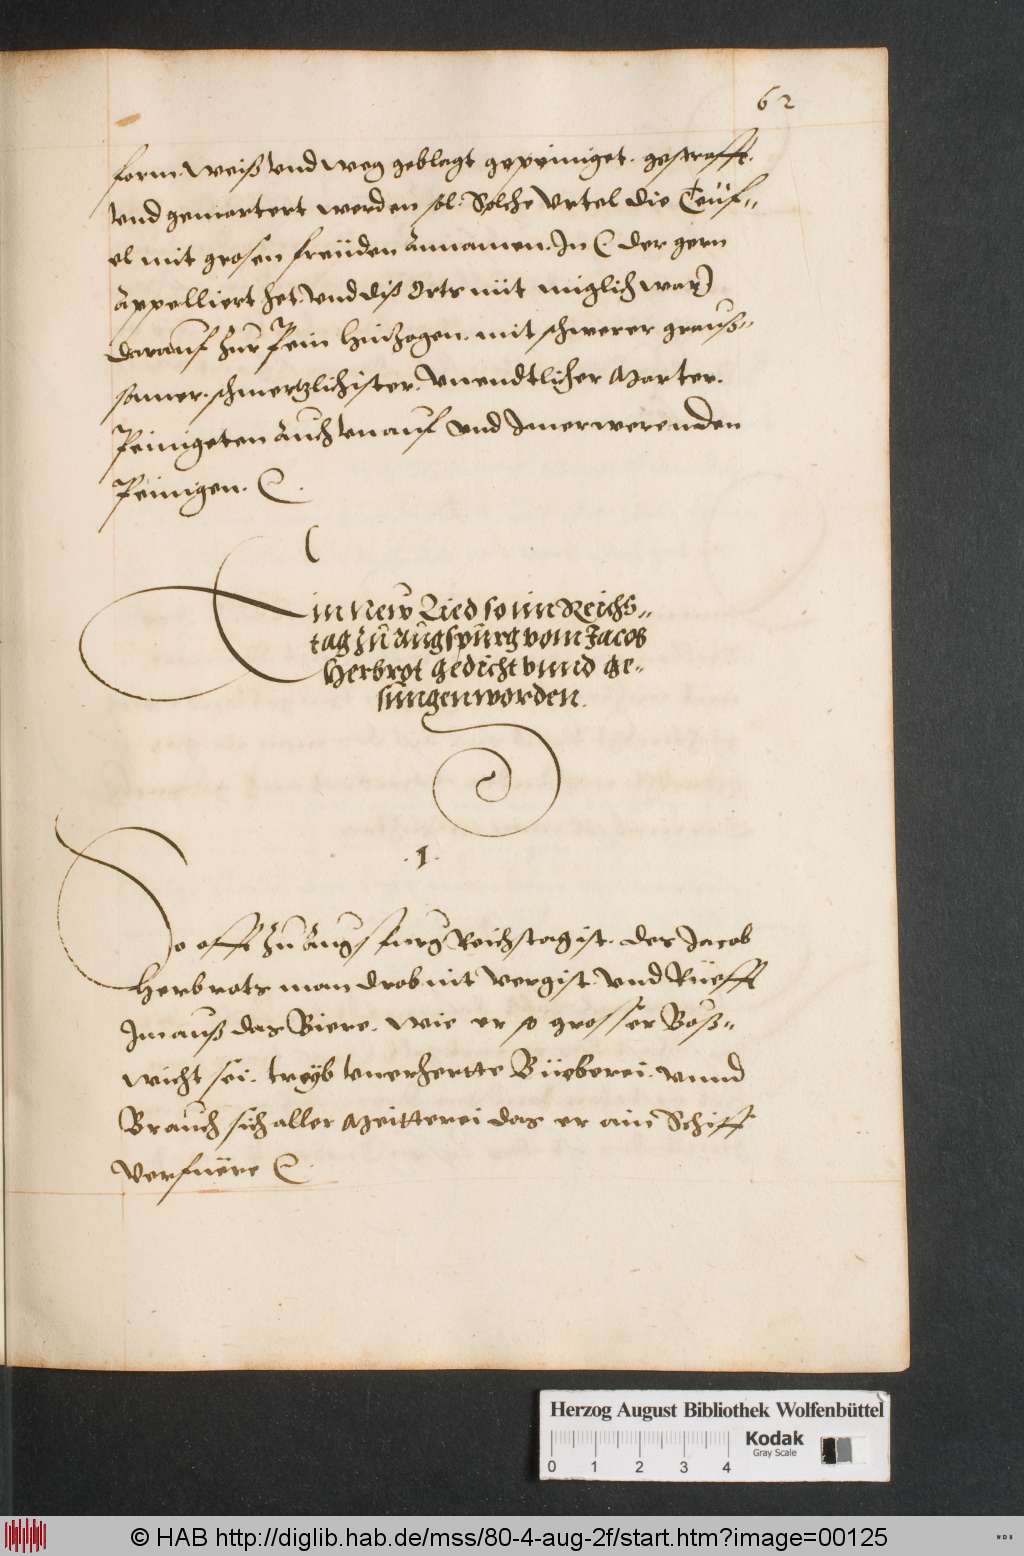 62
form. weiß vnd weg geblagt gepeiniget. gestrafft.
vnd gemartert werden sol. Solche Vrtel die Teüf-
el mit grosen freüden Annamen. In der gern
Appelliert het. vnd diß Orts nüt müglich war)
darauf zur Pein hinzogen. mit schwerer grauß-
samer. schmertzlichister. Vnendtlicher Marter.
Peinigeten Auch vnauf vnd Imerwerenden
Peinigen.
Ein New Lied so im Reichs-
tag zu Augspurg vom Jacob
Herbrot gedicht vnnd ge-
sungen worden.
.1.
So offt zu Augspurg Reichstag ist. des Jacob
Herbrots man drob nit vergist. vnd Rüefft
Im auß das Biere. wie er so grosser Böß-
wicht sei. treyb vnerhertte Büeberei. vnnd
Brauch sich aller Meitterei das er ain Schiff
verfuere
Herzog August Bibliothek Wolfenbüttel
Kodak
Gray Scale
0 1 2 3 4
© HAB http://diglib.hab.de/mss/80-4-aug-2f/start.htm?image=00125